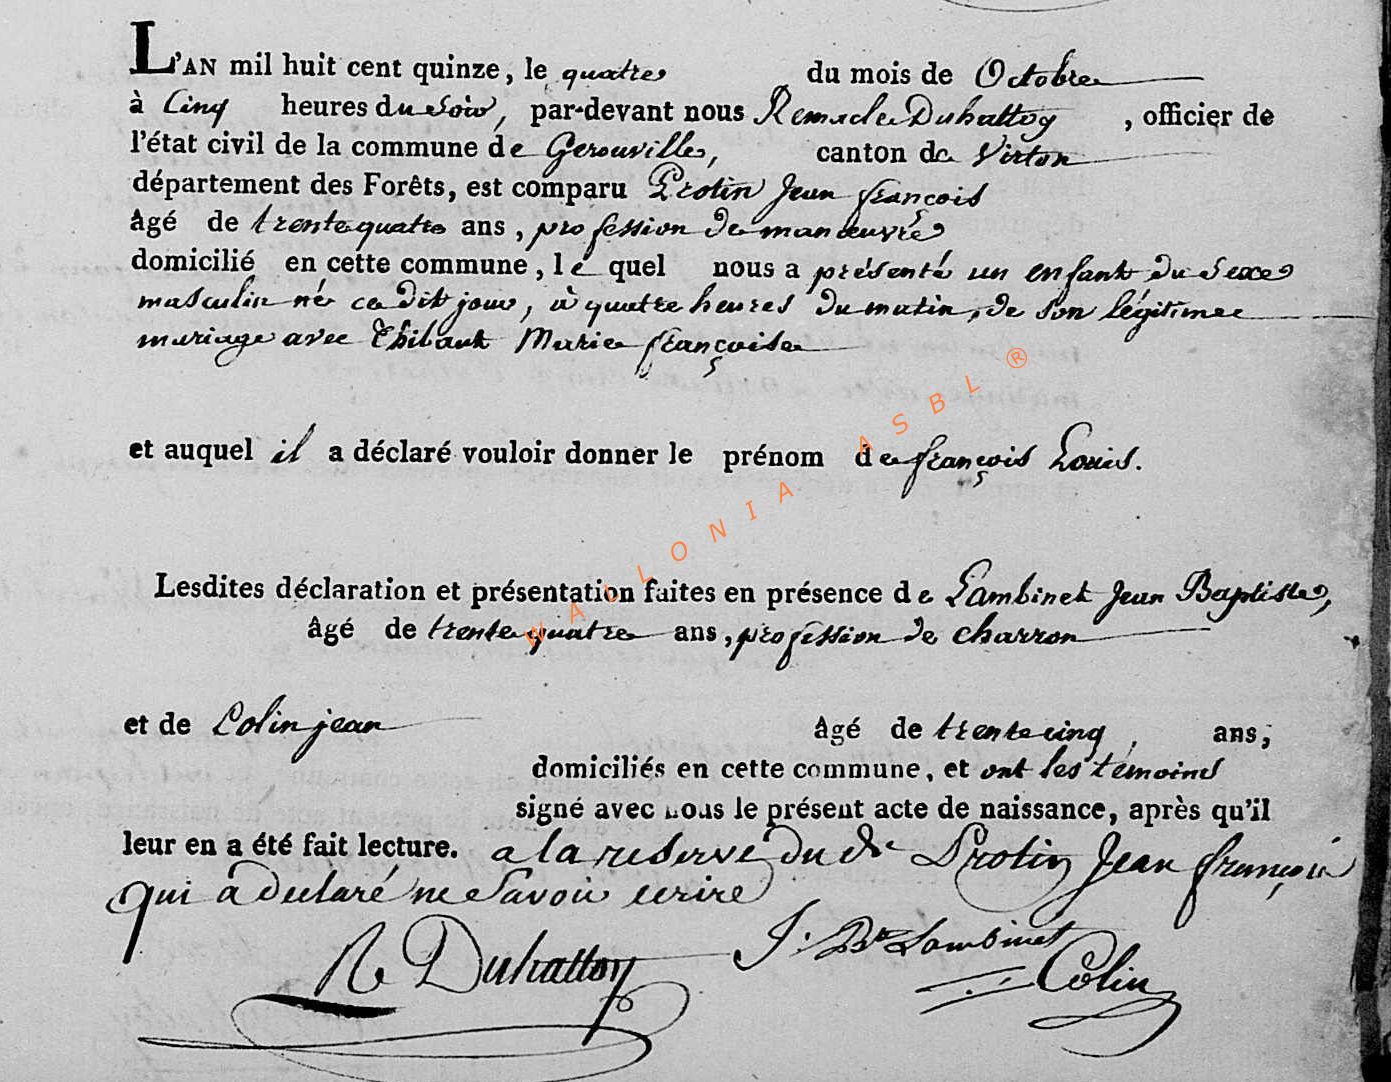 L'AN mil huit cent quinze, le quatre du mois de Octobre
à Cinq heures du Soir, par-devant nous Remacle Duhattoy, officier de
l'état civil de la commune de Gerouville, canton de Virton
département des Forêts, est comparu Protin Jean françois
âgé de trente quatre ans, profession de manœuvre
domicilié en cette commune, le quel nous a présenté un enfant du Sexe
masculin né ce dit jour, à quatre heures du matin, de son légitime
mariage avec Thibaut Marie françoise
et auquel il a déclaré vouloir donner le prénom de françois Louis.
Lesdites déclaration et présentation faites en présence de Lambinet Jean Baptiste,
âgé de trente quatre ans, profession de charron
et de Colin jean âgé de trente cinq, ans,
domiciliés en cette commune, et ont les témoins
signé avec nous le présent acte de naissance, après qu'il
leur en a été fait lecture. a la reserve du dt Protin Jean françois
qui a declaré ne Savoir ecrire
R Duhattoy J. Bte Lambinet
Colin
WALLONIA ASBL ®